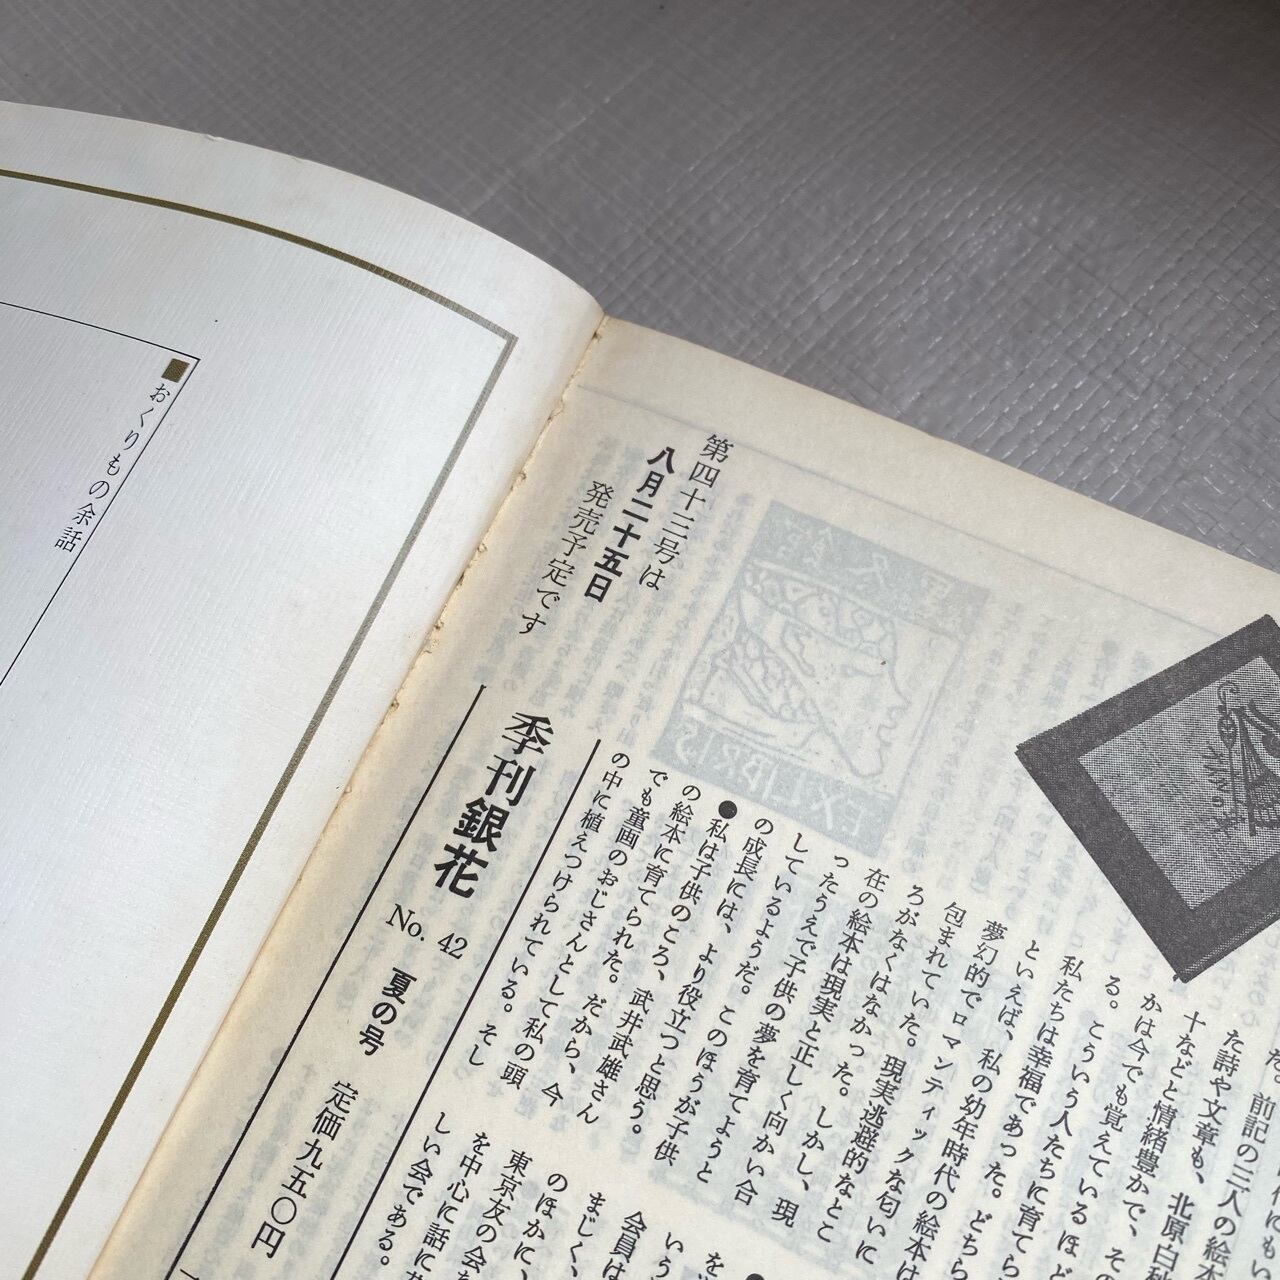 前記の三人の絵本
た詩や文章も、北原白
十などと情緒豊かで、その
かは今でも覚えているほど
る。こういう人たちに育てら
私たちは幸福であった。どちら
といえば、私の幼年時代の絵本は
夢幻的でロマンティックな匂いに
包まれていた。現実逃避的なとこ
ろがなくはなかった。しかし、現
在の絵本は現実と正しく向かい合
ったうえで子供の夢を育てようと
しているようだ。このほうが子供
の成長には、より役立つと思う。
●私は子供のころ、武井武雄さん
の絵本に育てられた。だから、今
でも童画のおじさんとして私の頭
の中に植えつけられている。そし
いう
会員は
まじく、
のほかに、
東京友の会
を中心に話に
しい会である。
第四十三号は
八月二十五日
発売予定です
季刊銀花 No. 42 夏の号 定価九五〇円
■おくりもの余話